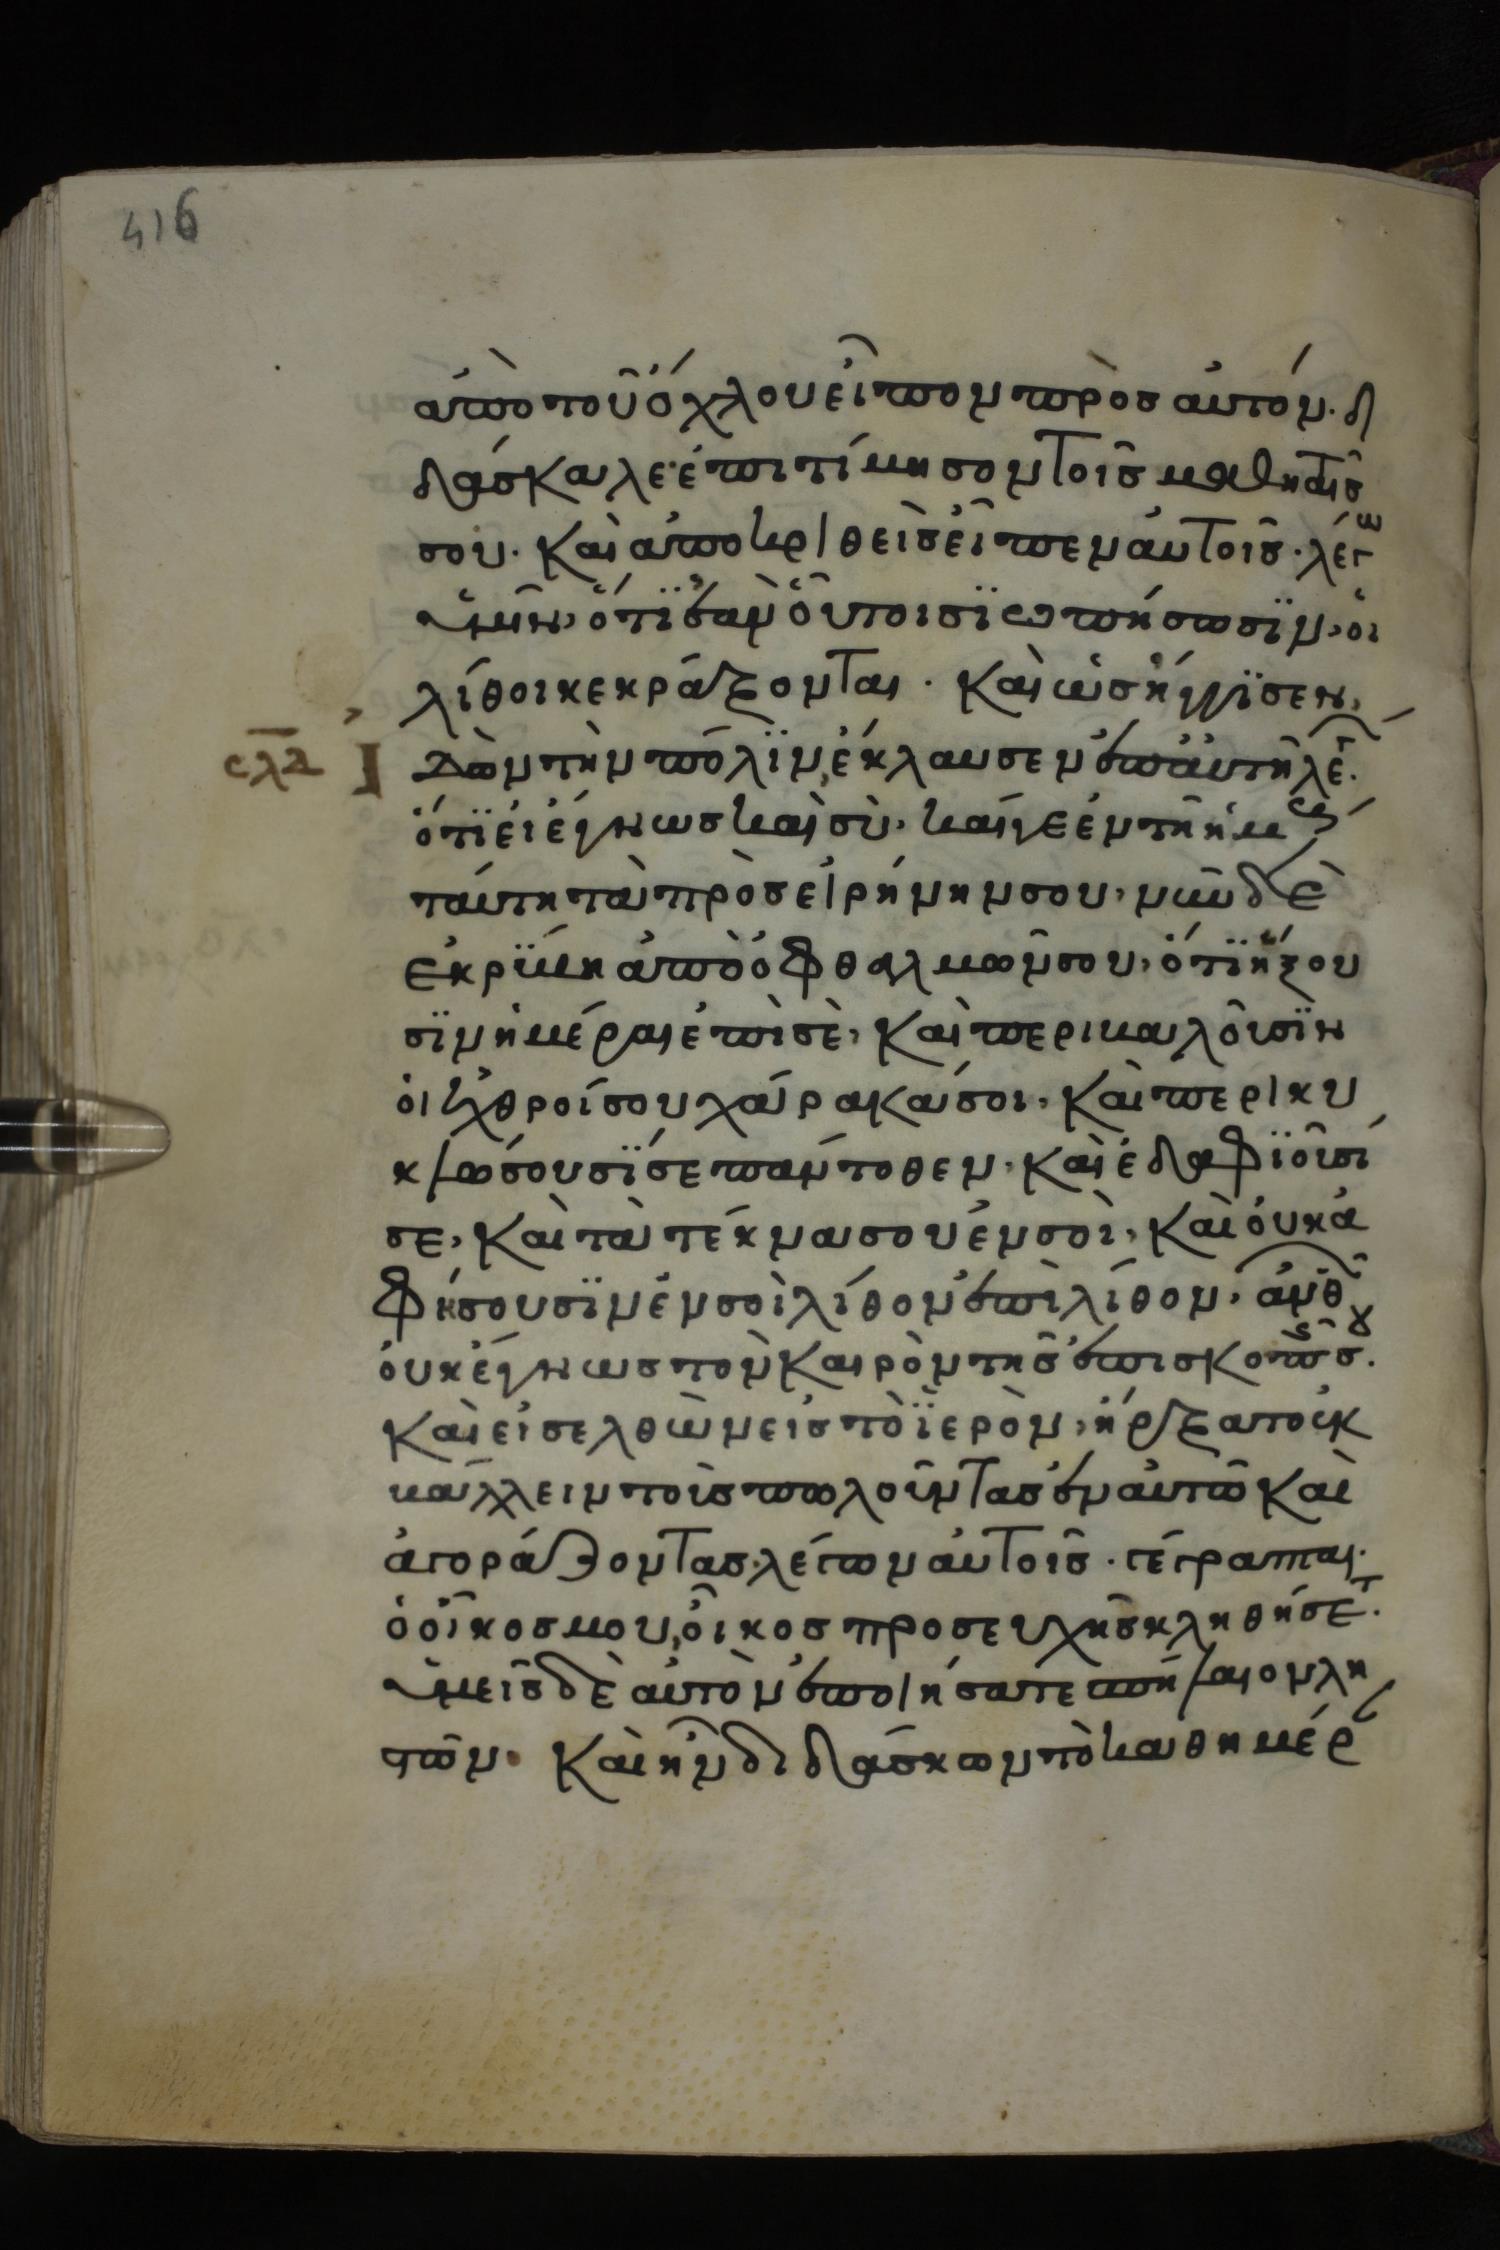 416
ἀπὸ τοῦ ὄχλου εἶπον πρὸς αὐτόν. δι
δάσκαλε· ἐπιτίμησον τοῖς μαθηταῖς
σου. Καὶ ἀποκριθεὶς εἶπεν αὐτοῖς. λέγω
ὑμῖν, ὅτϊ ἐὰν οὗτοι σϊωπήσωσϊν, οἱ
λίθοι κεκράξονται. Καὶ ὡς ἤγγϊσεν,
σλδ Ἰ
δὼν τὴν πόλϊν, ἔκλαυσεν ἐπ' αὐτῆ λέγ.
ὅτϊ εἰ ἔγνως καὶ σὺ, καί γε ἐν τῆ ἡμέρ
ταύτη τὰ πρὸς εἰρήνην σου, νῦν δὲ
ἐκρύβη ἀπὸ ὀφθαλμῶν σου, ὅτϊ ἥξου
σϊν ἡμέραι ἐπὶ σὲ, Καὶ περικαλοῦσϊν
οἱ ἐχθροί σου χάρακά σοι, Καὶ περικυ
κλώσουσϊ σε πάντοθεν, Καὶ ἐδαφϊοῦσί
σε, Καὶ τὰ τέκνα σου ἐν σοὶ, Καὶ οὐκ ἀ
φήσουσϊν ἐν σοὶ λίθον ἐπὶ λίθον, ἀνθ
οὐκ ἔγνως τὸν Καιρὸν τῆς ἐπισκοπῆς σου.
Καὶ εἰσελθὼν εἰς τὸ ϊερὸν, ἤρξατο ἐκ
βάλλειν τοὺς πωλοῦντας ἐν αὐτῶ Καὶ
ἀγοράζοντας, λέγων αὐτοῖς. γέγραπται.
ὁ οἶκος μου, οἶκος προσευχῆς κληθήσετ.
ὑμεῖς δὲ αὐτὸν ἐποιήσατε σπήλαιον λη
στῶν. Καὶ ἦν διδάσκων τὸ καθημέρ